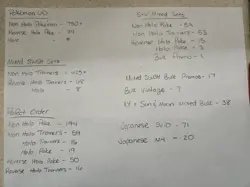 Pokemon GO
Non Holo Pokemon - 750+
Reverse Holo Poke - 39
Holo - 8
Mixed Bulk Lots
Non Holo Trainers - 425+
Reverse Holo Trainers - 49
Holo - 8
Order
Non Holo Poke - 194
Non Holo Trainers - 59
Holo Trainers - 16
Holo Poke - 19
Reverse Holo Poke - 50
Reverse Holo Trainers - 16
Mixed Lots
Non Holo Poke - 54
Non Holo Trainers - 63
Reverse Holo Poke - 15
Holo Poke - 3
Bulk Promo - 1
Mixed Bulk Promos - 17
Bulk Vintage - 7
XY + Sun & Moon Mixed Bulk - 38
Japanese - 71
Japanese - 20